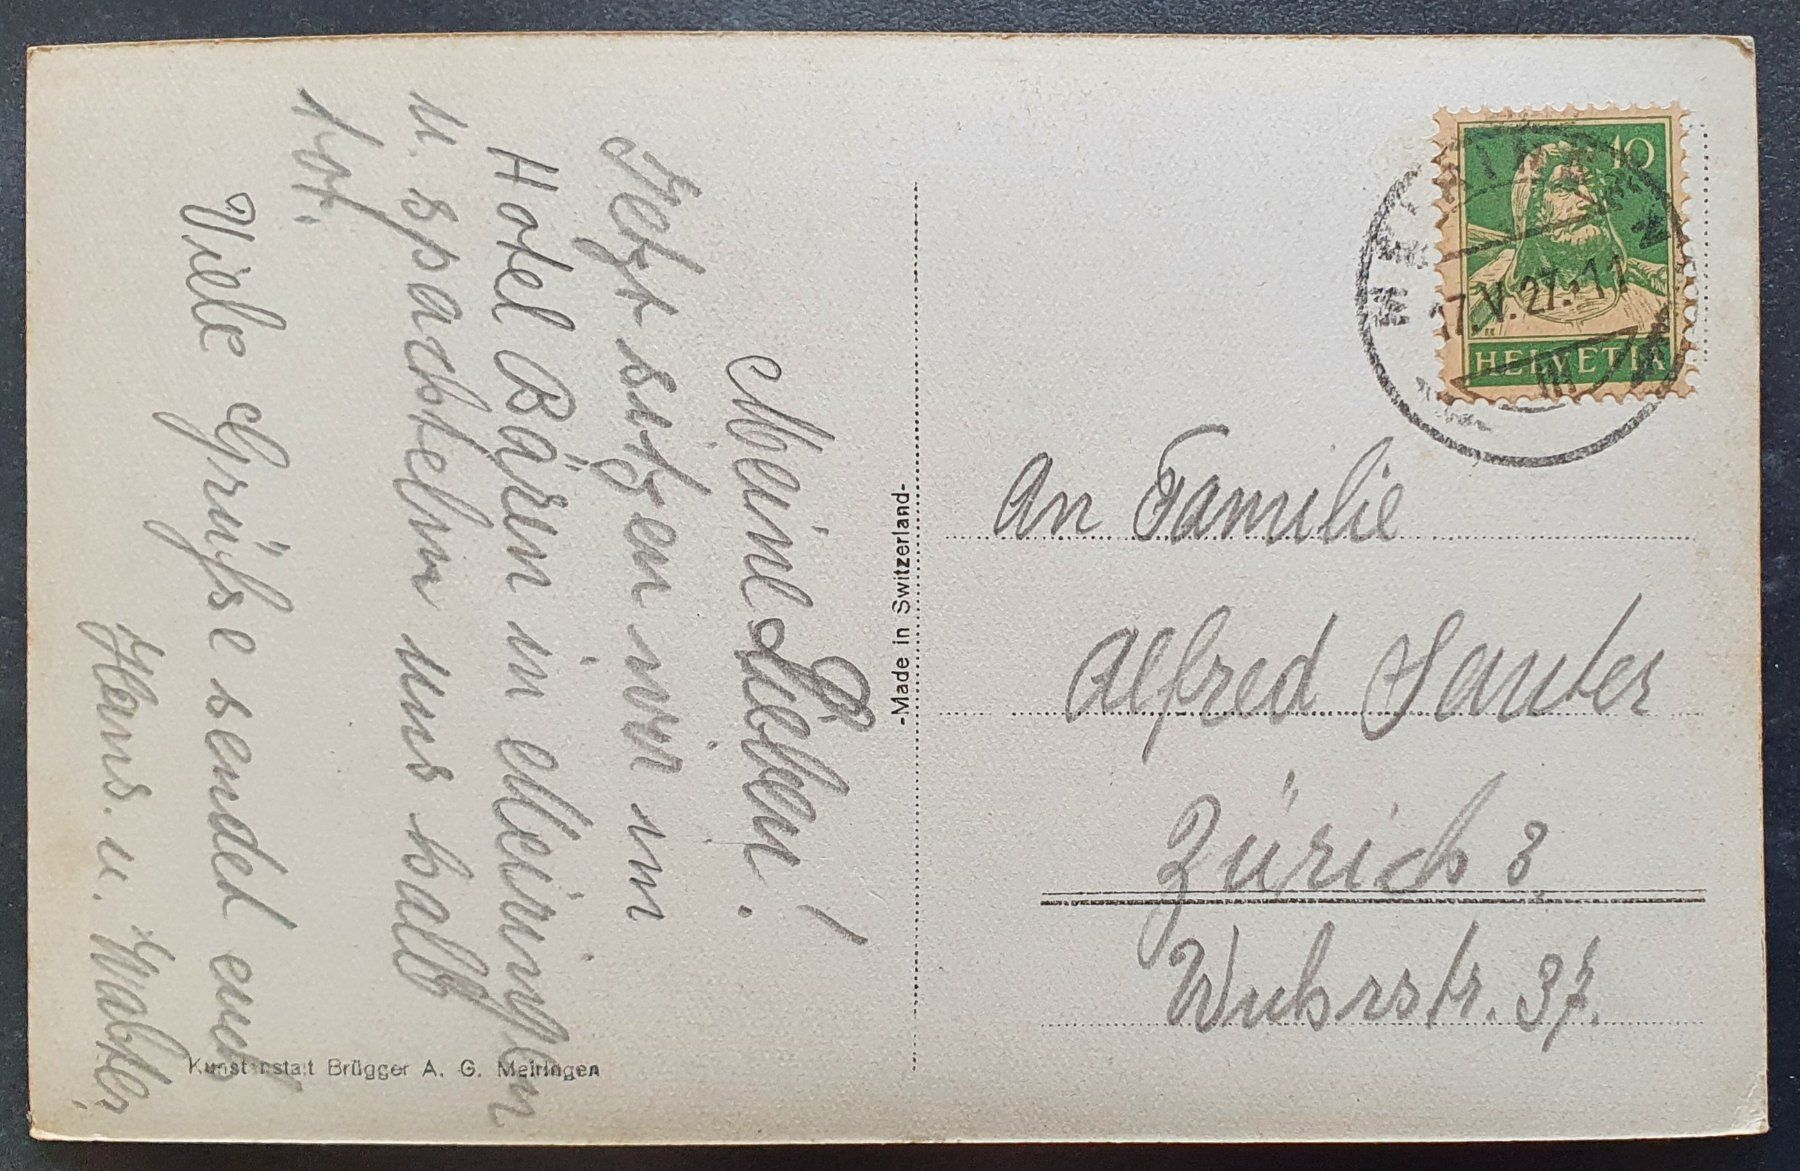 Meine Lieben!
Jetzt sitzen wir im
Hotel Bären in Meiringen
u. spachteln uns halb
tot.
Viele Grüsse sendet euch
Hans. u. Walter
-Made in Switzerland-
Kunstanstalt Brügger A. G. Meiringen
10
HELVETIA
MEIRINGEN
17.V.27.-11
An Familie
Alfred Sauter
Zürich 3.
Wuhrstr. 37.